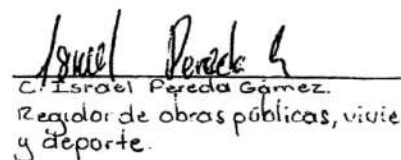 Israel Pereda G
C. Israel Pereda Gámez.
Regidor de obras públicas, vivie
y deporte.